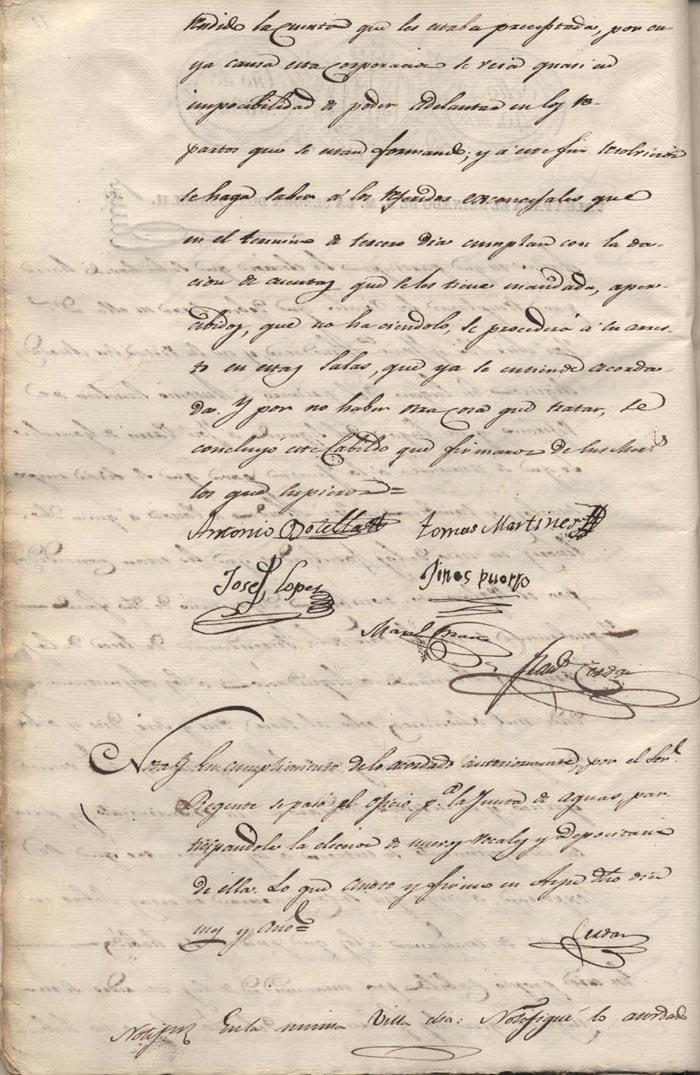 rendido la cuenta que les estaba preceptuada, por cu-
ya causa esta corporacion se verá quasi en
imposibilidad de poder adelantar en los re-
partos que se estan formando; y á este fin resolvieron
se haga saber á los referidos exconcejales que
en el termino de tercero dia cumplan con la da-
cion de cuentas que seles tiene mandada, aper-
cibidos, que no haciendolo, se procederá á su arres-
to en estas Salas, que ya se entiende acorda-
da. Y por no haber otra cosa que tratar, se
concluyó este Cabildo que firmaron de sus Mer.s
los que supieron =
Antonio Botella tomas Martinez
Josef Lopez Jines puerto
Man.l
Cerdan
Nota En cumplimiento delo acordado anteriormente, por el Sor.
Regente se pasó el oficio p.a la Junta de Aguas par-
ticipandole la eleccion de nuevos vocales y Depositario
de ella. Lo que anoto y firmo en Aspe dho dia
mes y año =
Cerdan
Notif.on En la misma Villa dia: Notifiqué lo acordado